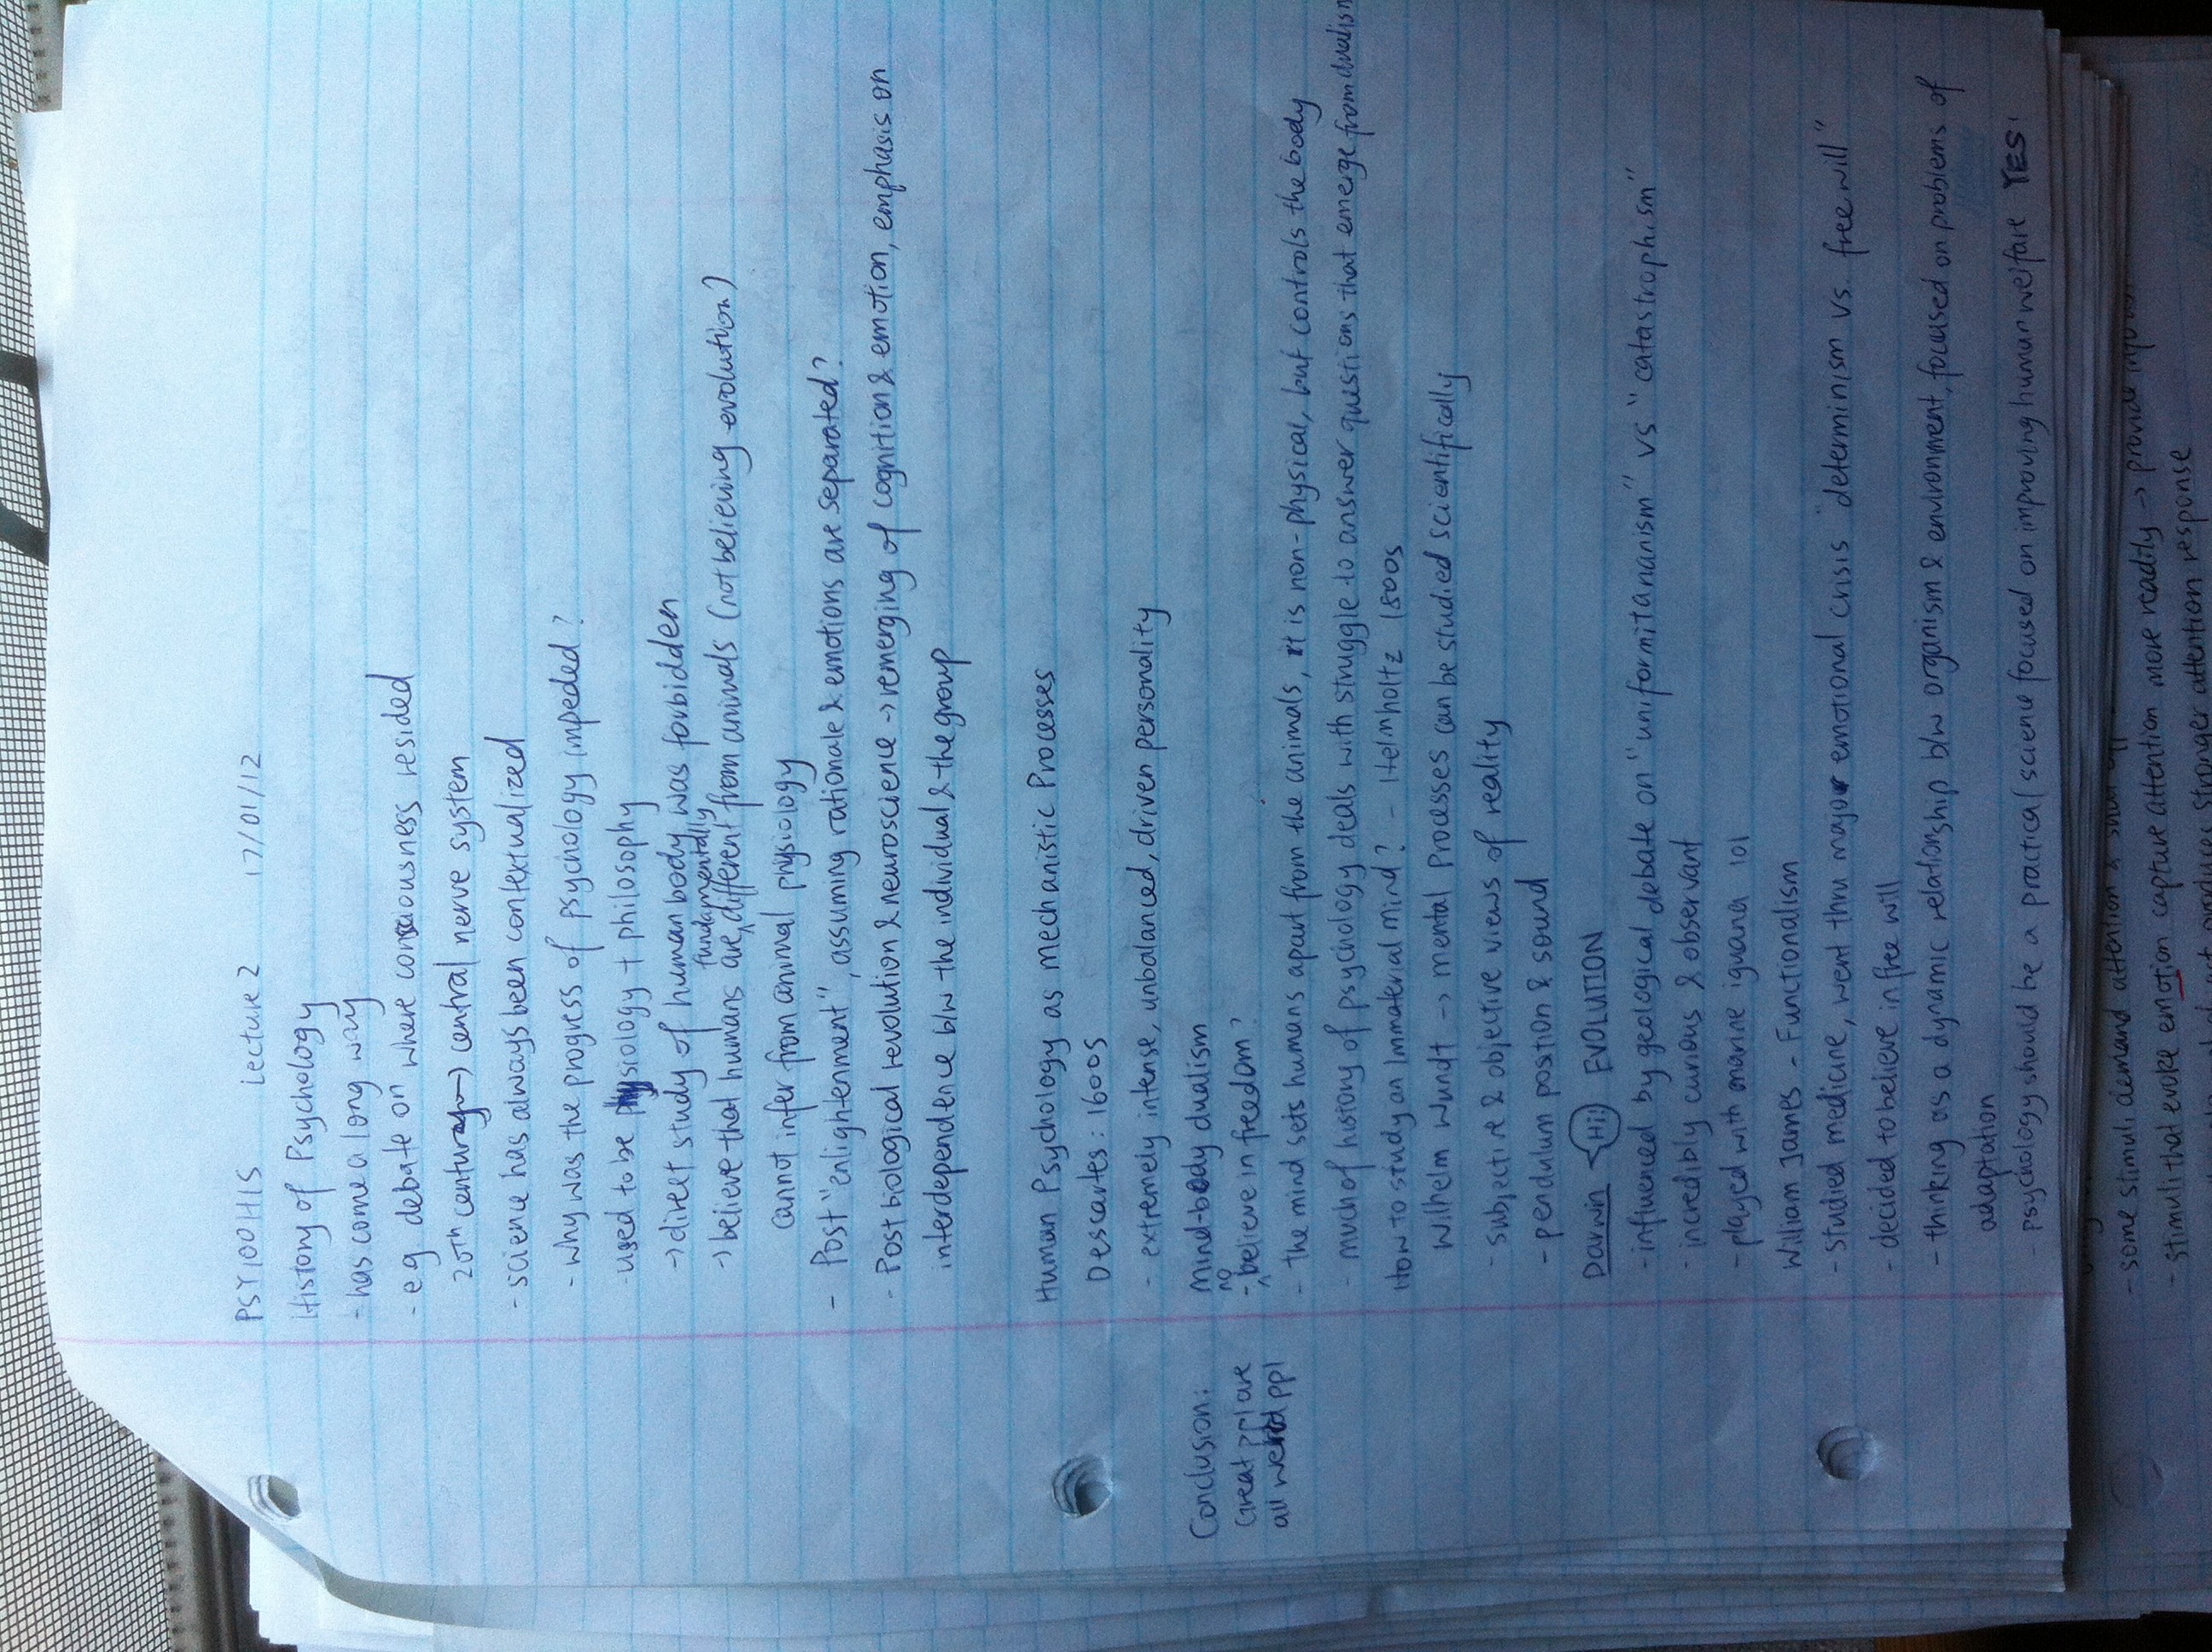 PSY100H1S Lecture 2 17/01/12
History of Psychology
- has come a long way
- eg debate on where consciousness resided
20th century → central nerve system
- science has always been contextualized
- Why was the progress of psychology impeded?
- used to be physiology + philosophy
→ direct study of human body was forbidden
fundamentally
→ believe that humans are ^ different from animals (not believing evolution)
cannot infer from animal physiology
- Post "enlightenment", assuming rationale & emotions are separated?
- Post biological revolution & neuroscience → remerging of cognition & emotion, emphasis on
interdependence b/w the individual & the group
Human Psychology as mechanistic Processes
Descartes: 1600s
- extremely intense, unbalanced, driven personality
Mind-body dualism
no
- ^ believe in freedom?
Conclusion:
Great ppl are
all weird ppl
- the mind sets humans apart from the animals, it is non-physical, but controls the body
- much of history of psychology deals with struggle to answer questions that emerge from dualism
How to study an Immaterial mind? - Helmholtz 1800s
Wilhelm Wundt → mental processes can be studied scientifically
- subjective & objective views of reality
- pendulum position & sound
Darwin Hi! EVOLUTION
- influenced by geological debate on "uniformitananism" vs "catastrophism"
- incredibly curious & observant
- played with marine iguana lol
William James - Functionalism
- studied medicine, went thru major emotional crisis "determinism vs. free will"
- decided to believe in free will
- thinking as a dynamic relationship b/w organism & environment, focused on problems of
adaptation
- psychology should be a practical science focused on improving human welfare YES!
- some stimuli demand attention &
- stimuli that evoke emotion capture attention more readily → provide
stronger attention response